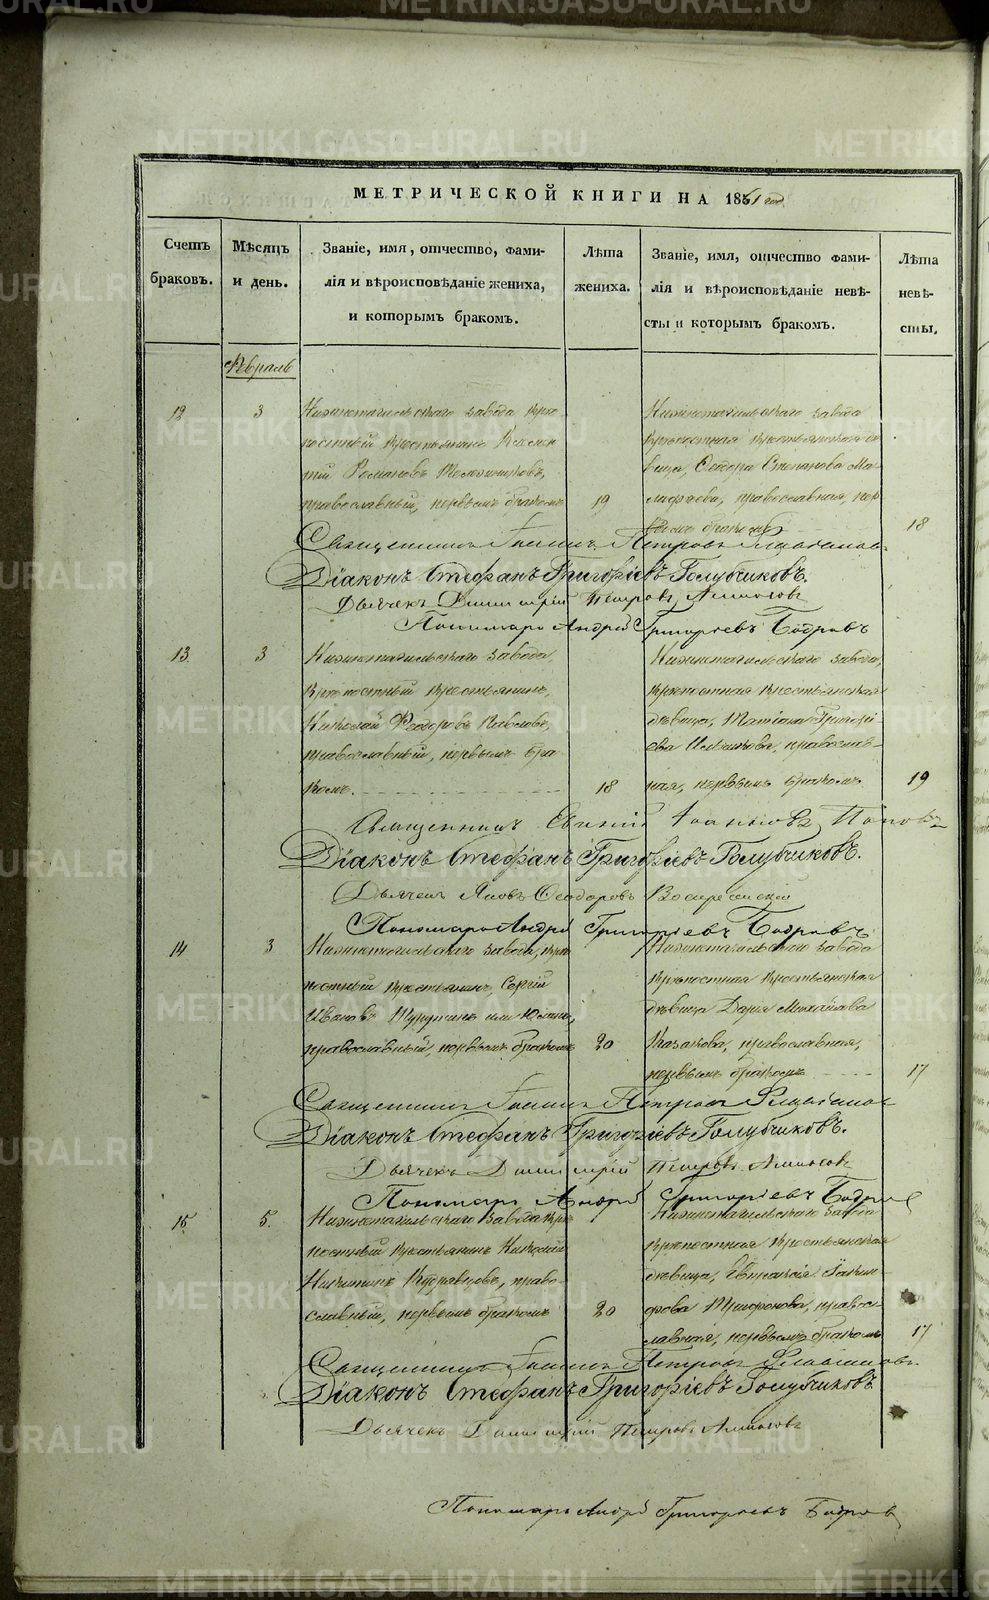 МЕТРИЧЕСКОЙ КНИГИ НА 1851 год
Счетъ браковъ.
Мѣсяцъ и день.
Званіе, имя, отчество, фами-
лія и вѣроисповѣданіе жениха,
и которымъ бракомъ.
Лѣта
жениха.
Званіе, имя, отчество фами-
лія и вѣроисповѣданіе невѣ-
сты и которымъ бракомъ.
Лѣта
невѣ-
сты.
Февраль
12
3
Нижнетагильскаго завода крѣ-
постный крестьянинъ
Романовъ
православный, первымъ бракомъ
19
Нижнетагильскаго завода
крѣпостная крестьянская дѣ-
вица, Ѳеодора Степанова Ма-
православная, пер-
вымъ бракомъ
18
Священникъ Іоаннъ Петровъ
Діаконъ Стефанъ Григоріевъ Голубчиковъ.
Дьячекъ Димитрій Петровъ
Пономарь Андрей Григорьевъ Бобровъ
13
3
Нижнетагильскаго завода,
крѣпостный крестьянинъ,
Николай Феодоровъ Павловъ,
православный, первымъ бра-
комъ.
18
Нижнетагильскаго завода,
крѣпостная крестьянская
дѣвица, Татіана Григорі-
ева православ-
ная, первымъ бракомъ
19
Священникъ Евгеній Іоанновъ Поповъ
Діаконъ Стефанъ Григоріевъ Голубчиковъ.
Дьячекъ Яковъ Ѳеодоровъ Воскресенскій
Пономарь Андрей Григорьевъ Бобровъ
14
3
Нижнетагильскаго завода, крѣ-
постный крестьянинъ, Сергій
Ивановъ или
православный, первымъ бракомъ
20
Нижнетагильскаго завода
крѣпостная крестьянская
дѣвица Дарія Михайлова
Казакова, православная,
первымъ бракомъ
17
Священникъ Іоаннъ Петровъ
Діаконъ Стефанъ Григоріевъ Голубчиковъ.
Дьячекъ Димитрій Петровъ
Пономарь Андрей Григоріевъ Бобровъ
15
5.
Нижнетагильскаго завода крѣ-
постный крестьянинъ Николай
Никитинъ Кудрявцовъ, право-
славный, первымъ бракомъ
20
Нижнетагильскаго завода
крѣпостная крестьянская
дѣвица,
Трифонова, право-
славная, первымъ бракомъ
17
Священникъ Іоаннъ Петровъ
Діаконъ Стефанъ Григоріевъ Голубчиковъ
Дьячекъ Димитрій Петровъ
Пономарь Андрей Григорьевъ Бобровъ
METRIKI.GASO-URAL.RU